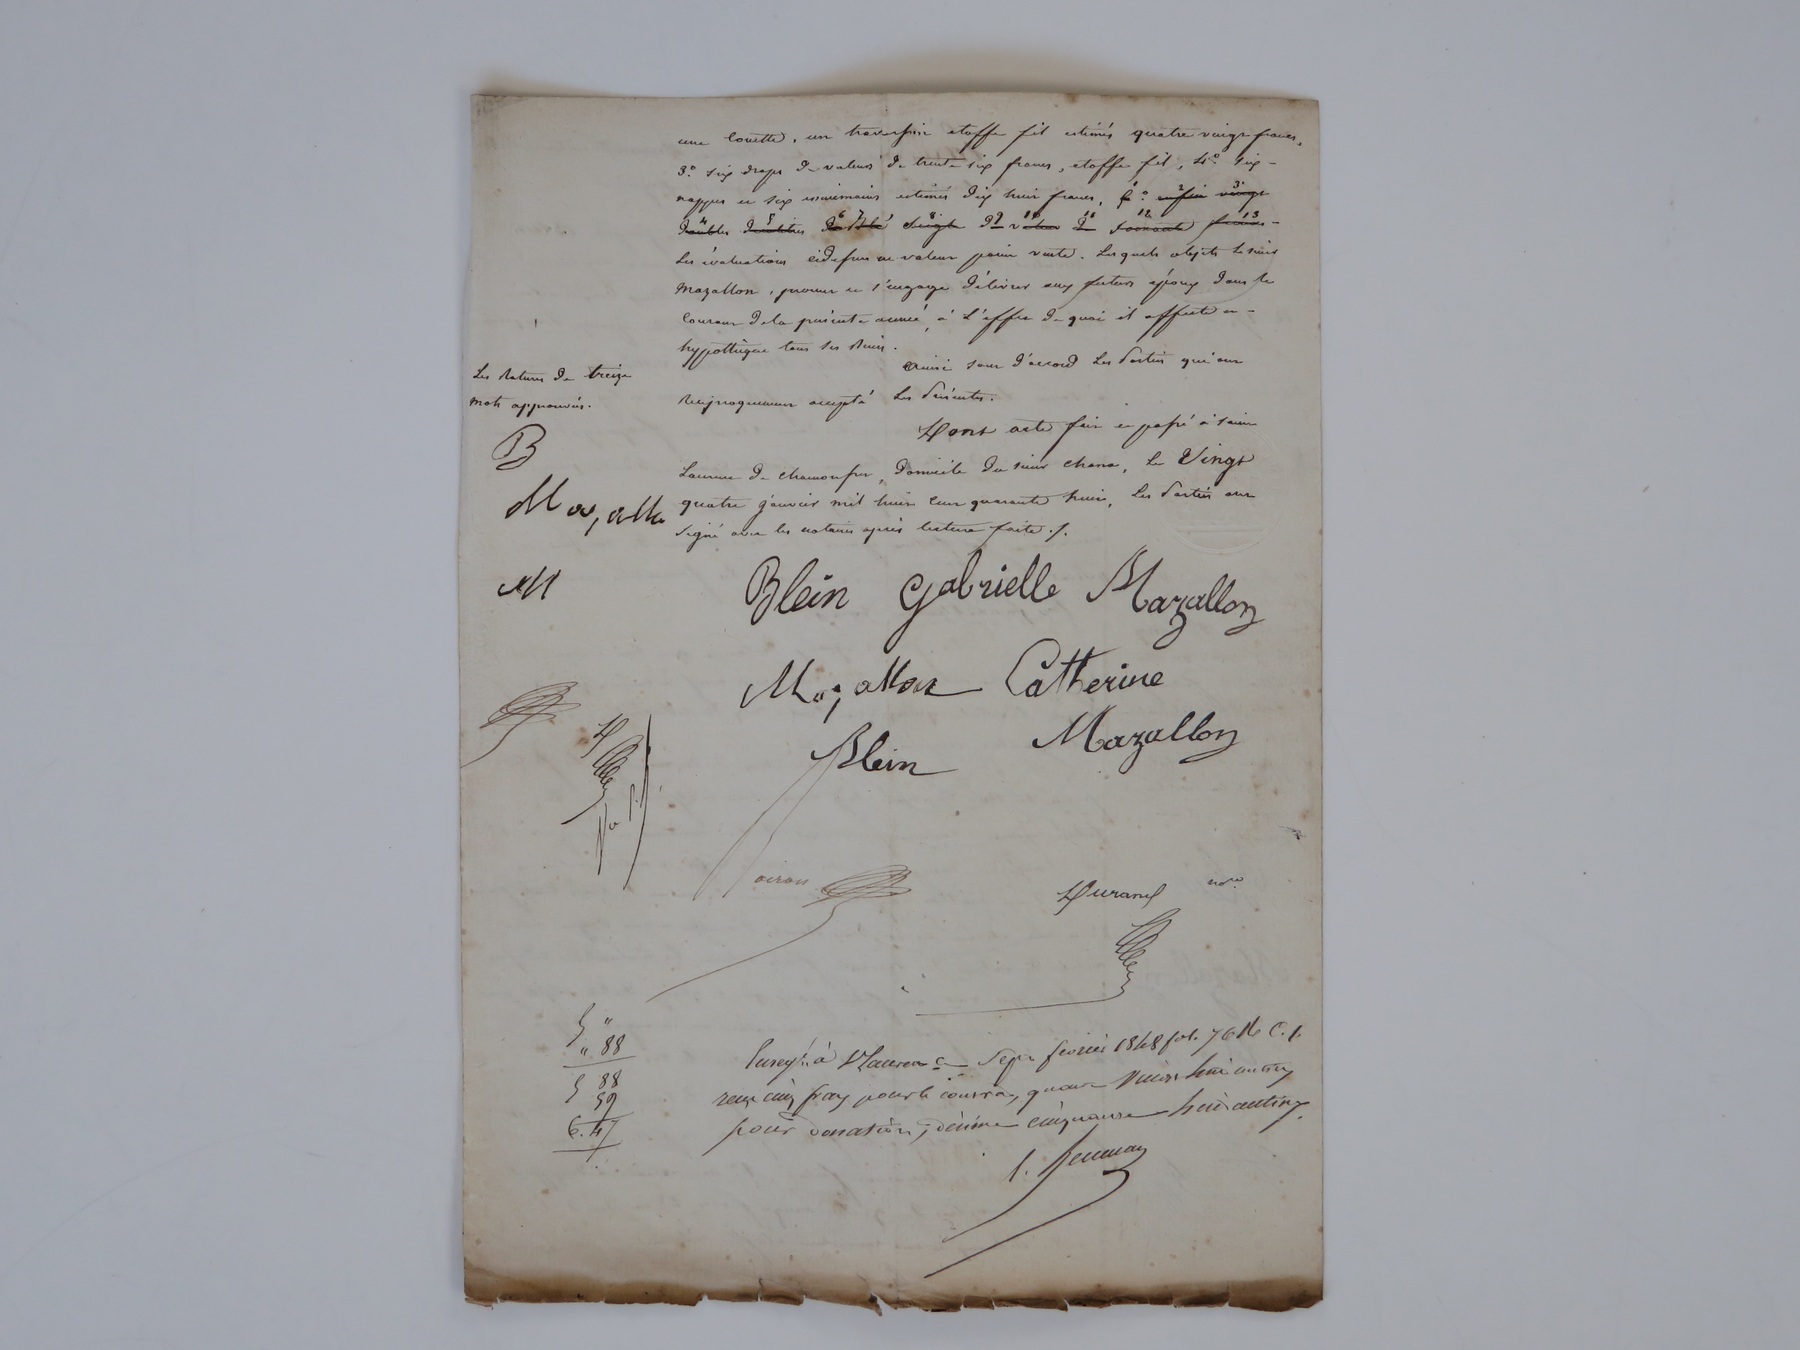 une couette, un traversin etoffe fil estimés quatre vingt francs,
3º six draps de valeur de trente six francs, etoffe fil, 4º six
nappes et six essuiemains estimés dix huit francs, 5º enfin vingt
doubles décalitres de blé seigle de valeur de soixante francs
Les évaluations cidessus ne valeur point vente. Lesquels objets le sieur
Mazallon, promet et s'engage délivrer aux futurs époux dans le
Courant de la présente année, à L'effet de quoi il affecte et
hypothèque tous ses biens.
Les ratures de treize
mots approuvés.
ainsi sont d'accord Les Parties qui ont
Réciproquement accepté Les Présentes.
Dont acte fait et passé à saint
Laurent de chamousset, domicile du sieur chana, Le Vingt
quatre janvier mil huit cent quarante huit, Les Parties ont
signé avec les notaires après lecture faite ./.
B
Mazallon
M
Blein Gabrielle Mazallon
Mazallon Catherine
Mazallon
Blein
Durand nore
5 "
" 88
5 88
59
6.47
Enregt. à St Laurent le Sept février 1848 fol. 76 Ro C. 1.
reçu cinq francs pour le contrat, quatre vingt huit centimes
pour donation, décime cinquante neuf centimes.